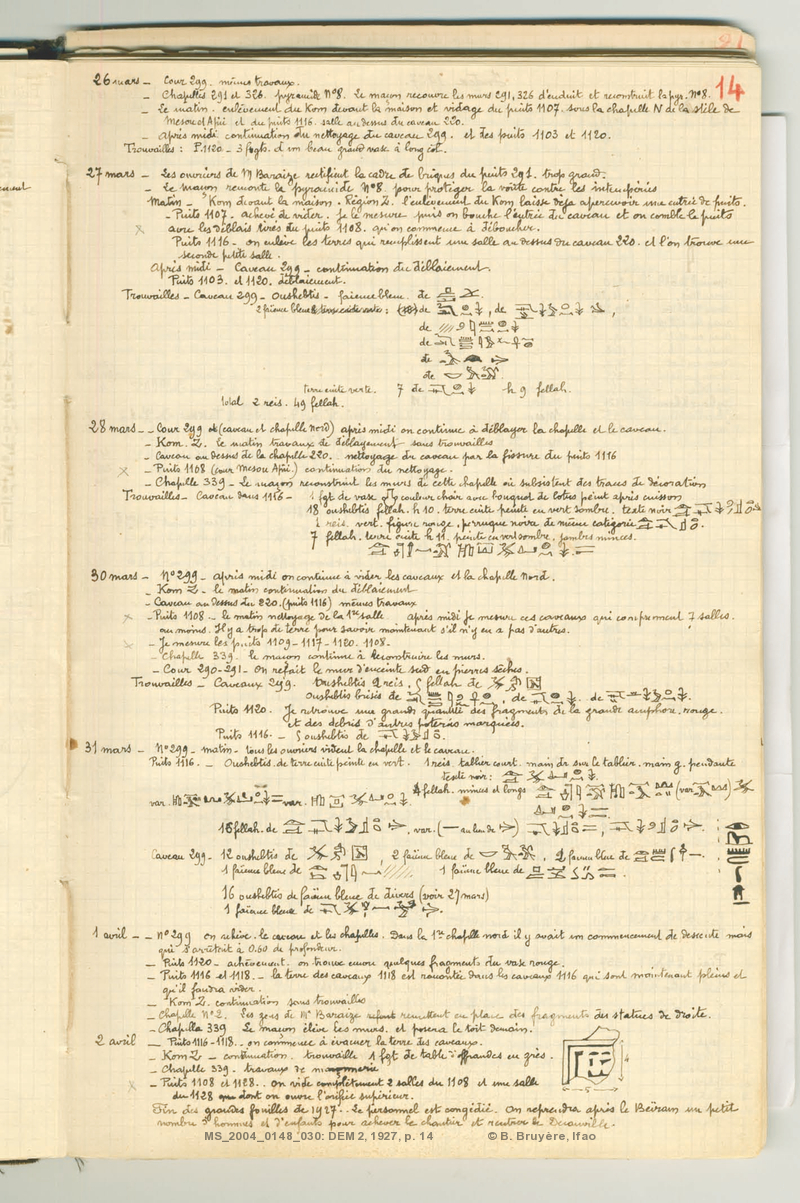 14
26 mars — Cour 299 - mêmes travaux
— Chapelles 291 et 326. pyramide N°8. Le maçon recouvre les murs 291, 326 d'enduit et reconstruit la pyr. N°8.
— Le matin. enlèvement du Kom devant la maison et vidage du puits 1107. sous la chapelle N de la stèle de
Mesou et Apii et du puits 1116. salle au dessus du caveau 220.
— Après midi continuation du nettoyage du caveau 299. et des puits 1103 et 1120.
Trouvailles : P. 1120 - 3 fragts. d'un beau grand vase à long col.
27 mars — Les ouvriers de M Baraize rectifient la cadre de briques du puits 291. trop grand.
— Le maçon remonte la pyramide N°8 pour protéger la voûte contre les intempéries
Matin — Kom devant la maison. Région Z. l'enlèvement du Kom laisse déjà apercevoir une entrée de puits.
— Puits 1107. achevé de vider. Je le mesure puis on bouche l'entrée du caveau et on comble le puits
x avec les déblais tirés du puits 1108. qu'on commence à déboucher.
Puits 1116 - on enlève les terres qui remplissent une salle au dessus du caveau 220. et l'on trouve une
seconde petite salle.
Après midi — Caveau 299 — continuation du déblaiement.
Puits 1103. et 1120. déblaiement.
Trouvailles — Caveau 299 - Oushebtis - faïence bleue. de
2 faïence bleue : de , de ,
de
de
de
de
terre cuite verte. 7 de h 9 fellah.
total 2 reis. 49 fellah.
28 mars — Cour 299 (caveau et chapelle Nord) après midi on continue à déblayer la chapelle et le caveau.
— Kom. Z. le matin travaux de déblayement sans trouvailles
— Caveau au dessus de la chapelle 220. nettoyage du caveau par la fissure du puits 1116
x — Puits 1108 (cour Mesou Apii.) continuation du nettoyage.
— Chapelle 339 - Le maçon reconstruit les murs de cette chapelle où subsistent des traces de décoration
Trouvailles — Caveau dans 1116 — 1 fgt de vase couleur chair avec bouquet de lotus peint après cuisson
18 oushebtis fellah. h 10. terre cuite peinte en vert sombre. texte noir
1 reis. vert. figure rouge. perruque noire de même catégorie
7 fellah. terre cuite h 11. peinte en vert sombre. jambes minces.
30 mars — N°299 - après midi on continue à vider les caveaux et la chapelle Nord.
— Kom Z - le matin continuation du déblaiement
— Caveau au dessus du 220. (puits 1116) mêmes travaux
x — Puits 1108 — le matin nettoyage de la 1re salle. après midi je mesure ces caveaux qui comprennent 7 salles.
au moins. Il y a trop de terre pour savoir maintenant s'il n'y en a pas d'autres.
x — Je mesure les puits 1109 - 1117 - 1120. 1108 -
— Chapelle 339. le maçon continue à reconstruire les murs.
— Cour 290-291 - On refait le mur d'enceinte sud en pierres sèches.
Trouvailles — Caveaux 299. Oushebtis 2 reis, 5 fellah de
Oushebtis brisés de , de . de
Puits 1120. Je retrouve une grande quantité des fragments de la grande amphore rouge.
et des débris d'autres poteries marquées.
Puits 1116. — 5 oushebtis de
31 mars — N°299 - matin - tous les ouvriers vident la chapelle et le caveau.
Puits 1116. — Oushebtis de terre cuite peinte en vert. 1 reis. tablier court. main dr. sur le tablier. main g. pendante
texte noir :
4 fellah. minces et longs (var )
var. var.
18 fellah. de , var. ( au lieu de ) ,
Caveau 299 - 12 oushebtis de , 2 faïence bleue de , 2 faïence bleue de
1 faïence bleue de 1 faïence bleue de .
16 oushebtis de faïence bleue de divers (voir 27 mars)
1 faïence bleue de
1 avril — N°299 on achève. le caveau et les chapelles. Dans la 1re chapelle nord il y avait un commencement de descente mais
qui s'arrêtait à 0.60 de profondeur.
— Puits 1120 - achèvement. on trouve encore quelques fragments du vase rouge.
— Puits 1116 et 1118. — la terre des caveaux 1118 est remontée dans les caveaux 1116 qui sont maintenant pleins et
qu'il faudra vider.
— Kom Z. continuation sans trouvailles
— Chapelle N°2. Les gens de Mr Baraize remettent en place des fragments des statues de droite.
— Chapelle 339 Le maçon élève les murs. et posera le toit demain.
2 avril — Puits 1116 - 1118. on commence à évacuer la terre des caveaux.
— Kom Z — continuation. trouvaille 1 fgt de table d'offrandes en grès.
— Chapelle 339. travaux de maçonnerie
x — Puits 1108 et 1128. On vide complètement 2 salles du 1108 et une salle
du 1128 dont on ouvre l'orifice supérieur.
Fin des grandes fouilles de 1927. Le personnel est congédié. On reprendra après le Beïram un petit
nombre d'hommes et d'enfants pour achever le chantier et rentrer le Decauville.
MS_2004_0148_030: DEM 2, 1927, p. 14 © B. Bruyère, Ifao